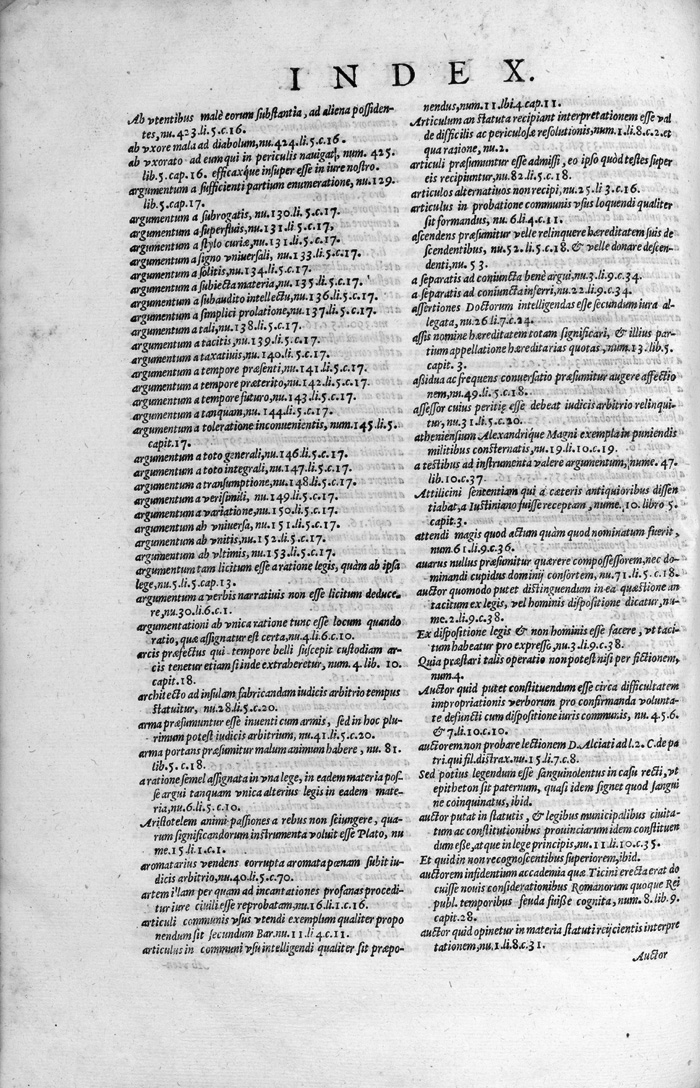 INDEX.
Ab vtentibus malè eorum substantia, ad aliena possiden-
tes, nu. 423.li.5.c.16.
ab vxore mala ad diabolum, nu.424.li.5.c.16.
ab vxorato ad eum qui in periculis nauigat, num. 425.
lib.5.cap.16. efficaxque insuper esse in iure nostro.
argumentum a sufficienti partium enumeratione, nu.129.
lib.5.cap.17.
argumentum a subrogatis, nu.130.li.5.c.17.
argumentum a superfluis, nu.131.li.5.c.17,
argumentum a stylo curiæ, nu.131.li.5.c.17.
argumentum a signo vniuersali, nu.133.li.5.c.17.
argumentum a solitis, nu.134.li.5.c.17.
argumentum a subiecta materia, nu.135.li.5.c.17.
argumentum a subaudito intellectu, nu.136.li.5.c.17.
argumentum a simplici prolatione, nu.137.li.5.c.17.
argumentum a tali, nu.138.li.5.c.17.
argumentum a tacitis, nu.139.li.5.c.17.
argumentum a taxatiuis, nu.140.li.5.c.17.
argumentum a tempore præsenti, nu.141.li.5.c.17.
argumentum a tempore præterito, nu.142.li.5.c.17.
argumentum a tempore futuro, nu.143.li.5.c.17.
argumentum a tanquam, nu.144.li.5.c.17.
argumentum a toleratione inconuenientis, num.145.li.5.
capit.17.
argumentum a toto generali, nu.146.li.5.c.17.
argumentum a toto integrali, nu.147.li.5.c.17.
argumentum a transumptione, nu.148.li.5.c.17.
argumentum a verisimili, nu.149.li.5.c.17.
argumentum a variatione, nu.150.li.5.c.17.
argumentum ab vniuersa, nu.151.li.5.c.17.
argumentum ab vnitis, nu.152.li.5.c.17.
argumentum ab vltimis, nu.153.li.5.c.17.
argumentum tam licitum esse a ratione legis, quàm ab ipsa
lege, nu.5.li.5.cap.13.
argumentum a verbis narratiuis non esse licitum deduce-
re, nu.30.li.6.c.1.
argumentationi ab vnica ratione tunc esse locum quando
ratio, quæ assignatur est certa, nu.4.li.6.c.10.
arcis præfectus qui tempore belli suscepit custodiam ar-
cis tenetur etiam si inde extraheretur, num.4.lib. 10.
capit.18.
architecto ad insulam fabricandam iudicis arbitrio tempus
statuitur, nu.28.li.5.c.20.
arma præsumuntur esse inuenti cum armis, sed in hoc plu-
rimum potest iudicis arbitrium, nu.41.li.5.c.20.
arma portans præsumitur malum animum habere, nu. 81.
lib.5.c.18.
a ratione semel assignata in vna lege, in eadem materia pos-
se argui tanquam vnica alterius legis in eadem mate-
ria, nu.6.li.5.c.10.
Aristotelem animi passiones a rebus non seiungere, qua-
rum significandorum instrumenta voluit esse Plato, nu
me.15.li.1.c.1.
aromatarius vendens corrupta aromata pœnam subit iu-
dicis arbitrio, nu.40.li.5.c.70.
artem illam per quam ad incantationes profanas procedi-
tur iure ciuili esse reprobatam, nu.16.li.1.c.16.
articuli communis vsus vtendi exemplum qualiter propo
nendum sit secundum Bar.nu.11.li 4.c.11.
articulus in communi vsu intelligendi qualiter sit præpo-
nendus, num.11.lbi.4.cap.11.
Articulum an statuta recipiant interpretationem esse val
de difficilis ac periculosæ resolutionis, num.1.li.8.c.2.et
qua ratione, nu.2.
articuli præsumuntur esse admissi, eo ipso quòd testes super
eis recipiuntur, nu.82.li.5.c.18.
articulos alternatiuos non recipi, nu.25.li 3.c.16.
articulus in probatione communis vsus loquendi qualiter
sit formandus, nu.6.li.4.c.11.
ascendens præsumitur velle relinquere hæreditatem suis de
scendentibus, nu.52.li.5.c.18. & velle donare descen-
denti, nu 53.
a separatis ad coniuncta benè argui, nu.3.li.9.c.34.
a separatis ad coniuncta inferri, nu.22.li.9.c.34.
assertiones Doctorum intelligendas esse secundum iura al-
legata, nu.26.li.7.c.24.
assis nomine hæreditatem totam significari, & illius par-
tium appellatione hæreditarias quotas, num.13.lib.5.
capit.3.
assidua ac frequens conuersatio præsumitur augere affectio
nem, nu.49.li.5.c.18.
assessor cuius peritiæ esse debeat iudicis arbitrio relinqui-
tur, nu.31.li.5.c.20.
atheniensium Alexandrique Magni exempla in puniendis
militibus consternatis, nu.19.li.10.c.19.
a testibus ad instrumenta valere argumentum, nume. 47.
lib.10.c.37.
Attilicini sententiam qui a cæteris antiquioribus dissen
tiabat, a Iustiniano fuisse receptam, nume.10.libro 5.
capit.3.
attendi magis quod actum quàm quod nominatum fuerit,
num.61.li.9.c.36.
auarus nullus præsumitur quærere compossessorem, nec do-
minandi cupidus dominij consortem, nu.71.li.5.c.18.
auctor quomodo putet distinguendum in ea quæstione an
tacitum ex legis, vel hominis dispositione dicatur, nu-
me.2.li.9.c.38.
Ex dispositione legis & non hominis esse facere, vt taci-
tum habeatur pro expresso, nu.3.li.9.c.38.
Quia præstari talis operatio non potest nisi per fictionem,
num.4.
Auctor quid putet constituendum esse circa difficultatem
impropriationis verborum pro confirmanda volunta-
te defuncti cum dispositione iuris communis, nu.4.5.6.
& 7.li.10.c.10.
auctorem non probare lectionem D.Alciati ad l.2.C.de pa
tri.qui fil.distrax.nu.15.li.7.c.8.
Sed potius legendum esse sanguinolentus in casu recti, vt
epitheton sit paternum, quasi idem signet quod sangui
ne coinquinatus, ibid.
auctor putat in statutis, & legibus municipalibus ciuita-
tum ac constitutionibus prouinciarum idem constituen
dum esse, at que in lege principis, nu.11.li.10.c.35.
Et quid in non recognoscentibus superiorem, ibid.
auctorem insidentium accademia quæ Ticini erecta erat do
cuisse nouis considerationibus Romanorum quoque Rei
publ. temporibus feuda fuisse cognita, num.8.lib.9.
capit.28.
auctor quid opinetur in materia statuti reijcientis interpre
tationem, nu.1.li.8.c.31.
Auctor